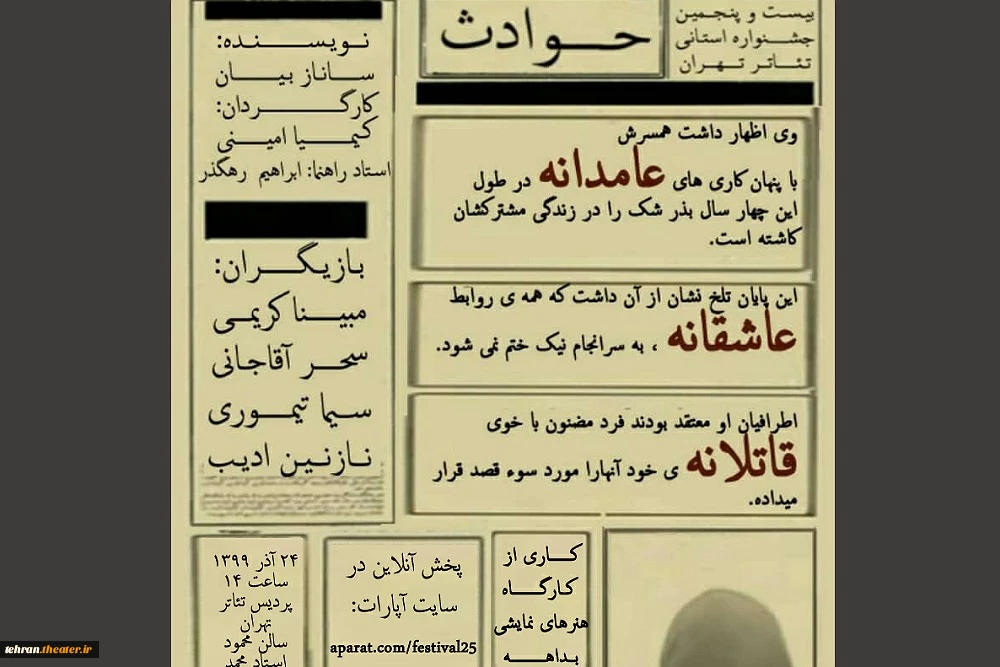 بیست و پنجمین
جشنواره استانی
تئاتر تهران
حوادث
نویسنده:
ساناز بیان
کارگردان:
کیمیا امینی
استاد راهنما: ابراهیم رهگذر
بازیگران:
مبینا کریمی
سحر آقاجانی
سیما تیموری
نازنین ادیب
وی اظهار داشت همسرش
با پنهان کاری های عامدانه در طول
این چهار سال بذر شک را در زندگی مشترکشان
کاشته است.
این پایان تلخ نشان از آن داشت که همه ی روابط
عاشقانه ، به سرانجام نیک ختم نمی شود.
اطرافیان او معتقد بودند فرد مضنون با خوی
قاتلانه ی خود آنهارا مورد سوء قصد قرار
میداده.
کاری از
کارگاه
هنرهای نمایشی
بداهه
پخش آنلاین در
سایت آپارات:
aparat.com/festival25
۲۴ آذر ۱۳۹۹
ساعت ۱۴
پردیس تئاتر
تهران
سالن محمود
استاد محمد
tehran.theater.ir